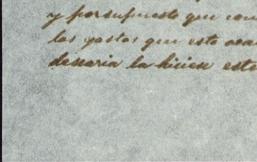 y por supuesto que con
los gastos que esto oca
desearia la hiciese este